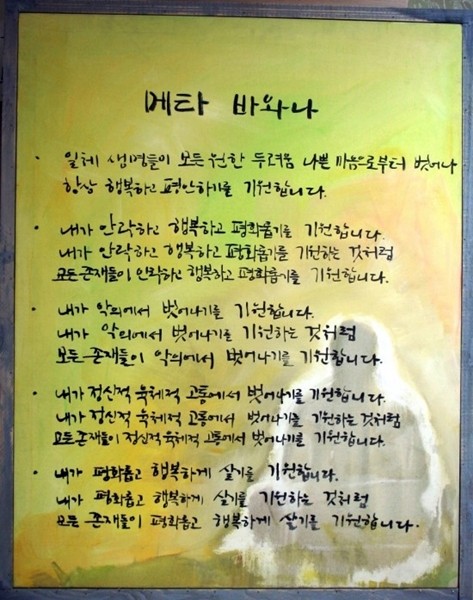 메타 바와나
· 일체 생명들이 모든 원한 두려움 나쁜 마음으로부터 벗어나
항상 행복하고 평안하기를 기원합니다.
· 내가 안락하고 행복하고 평화롭기를 기원합니다.
내가 안락하고 행복하고 평화롭기를 기원하는 것처럼
모든 존재들이 안락하고 행복하고 평화롭기를 기원합니다.
· 내가 악의에서 벗어나기를 기원합니다.
내가 악의에서 벗어나기를 기원하는 것처럼
모든 존재들이 악의에서 벗어나기를 기원합니다.
· 내가 정신적 육체적 고통에서 벗어나기를 기원합니다.
내가 정신적 육체적 고통에서 벗어나기를 기원하는 것처럼
모든 존재들이 정신적 육체적 고통에서 벗어나기를 기원합니다.
· 내가 평화롭고 행복하게 살기를 기원합니다.
내가 평화롭고 행복하게 살기를 기원하는 것처럼
모든 존재들이 평화롭고 행복하게 살기를 기원합니다.